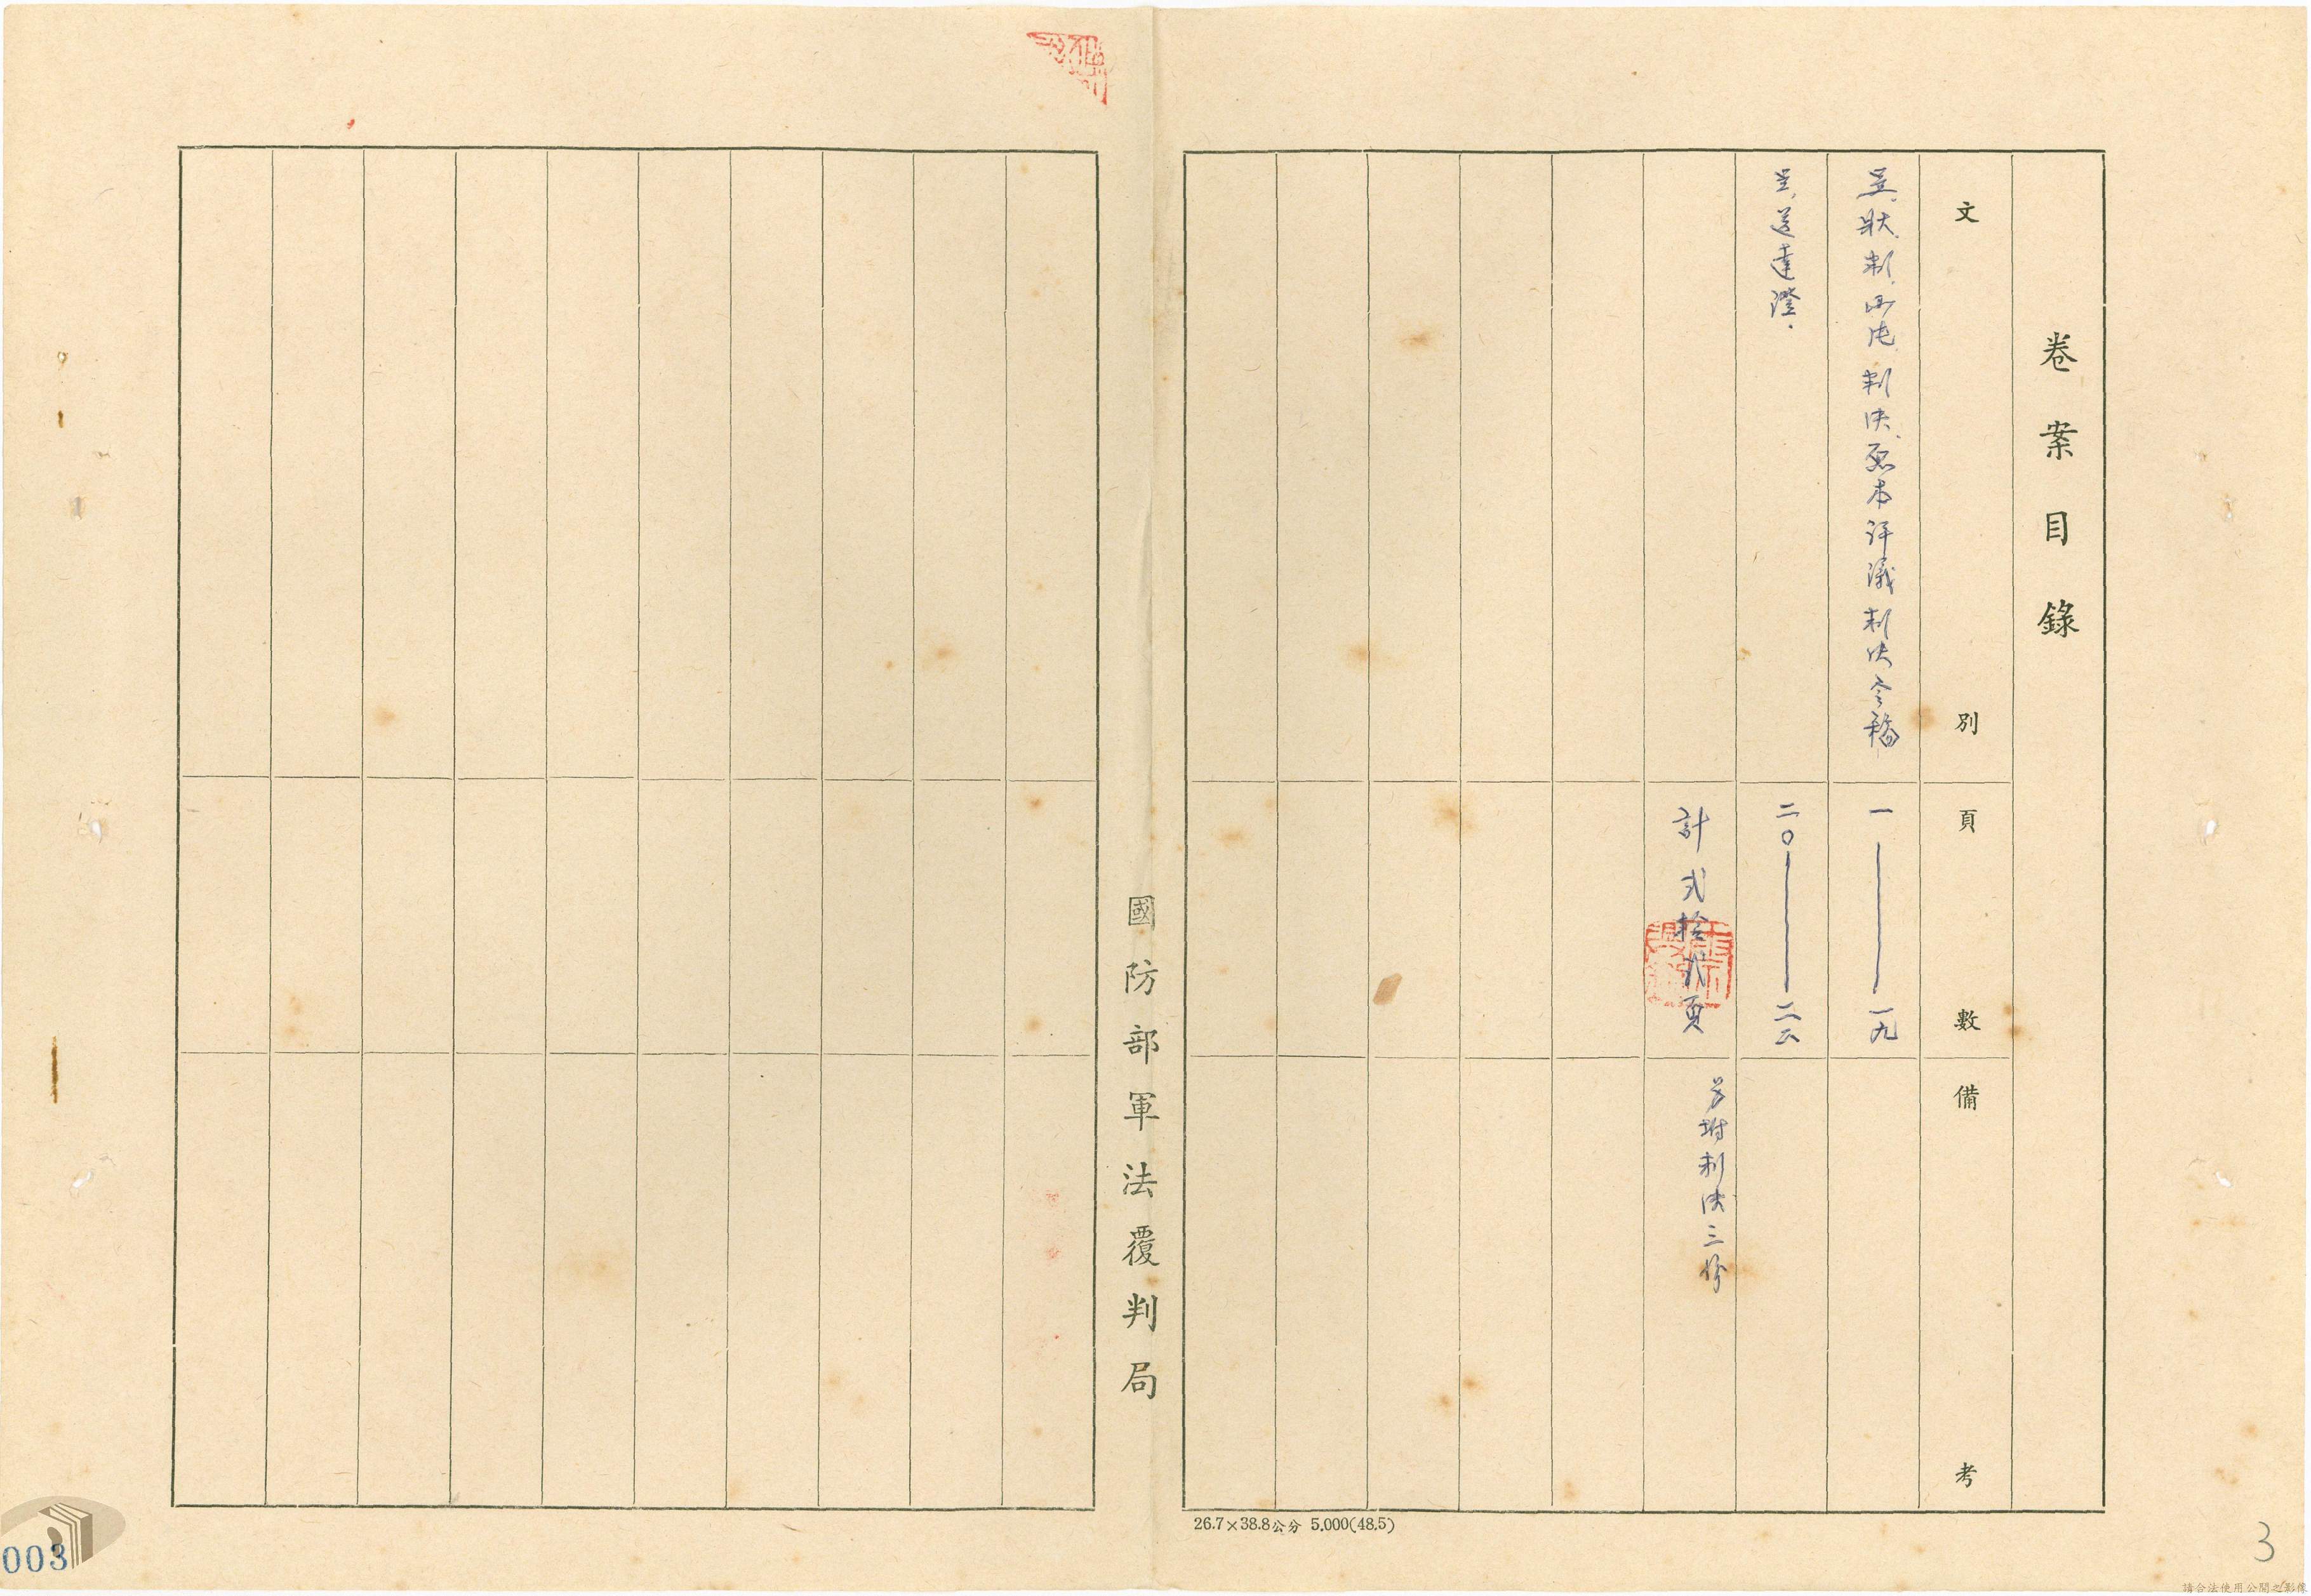 卷案目錄
文別
頁數
備考
呈.狀.判.
判決.原本評議判決令稿
一——一九
呈.送達證.
二〇——二二
計弍拾弍頁
另附判決三份
國防部軍法覆判局
26.7×38.8公分 5.000(48.5)
003
3
請合法使用公開之影像